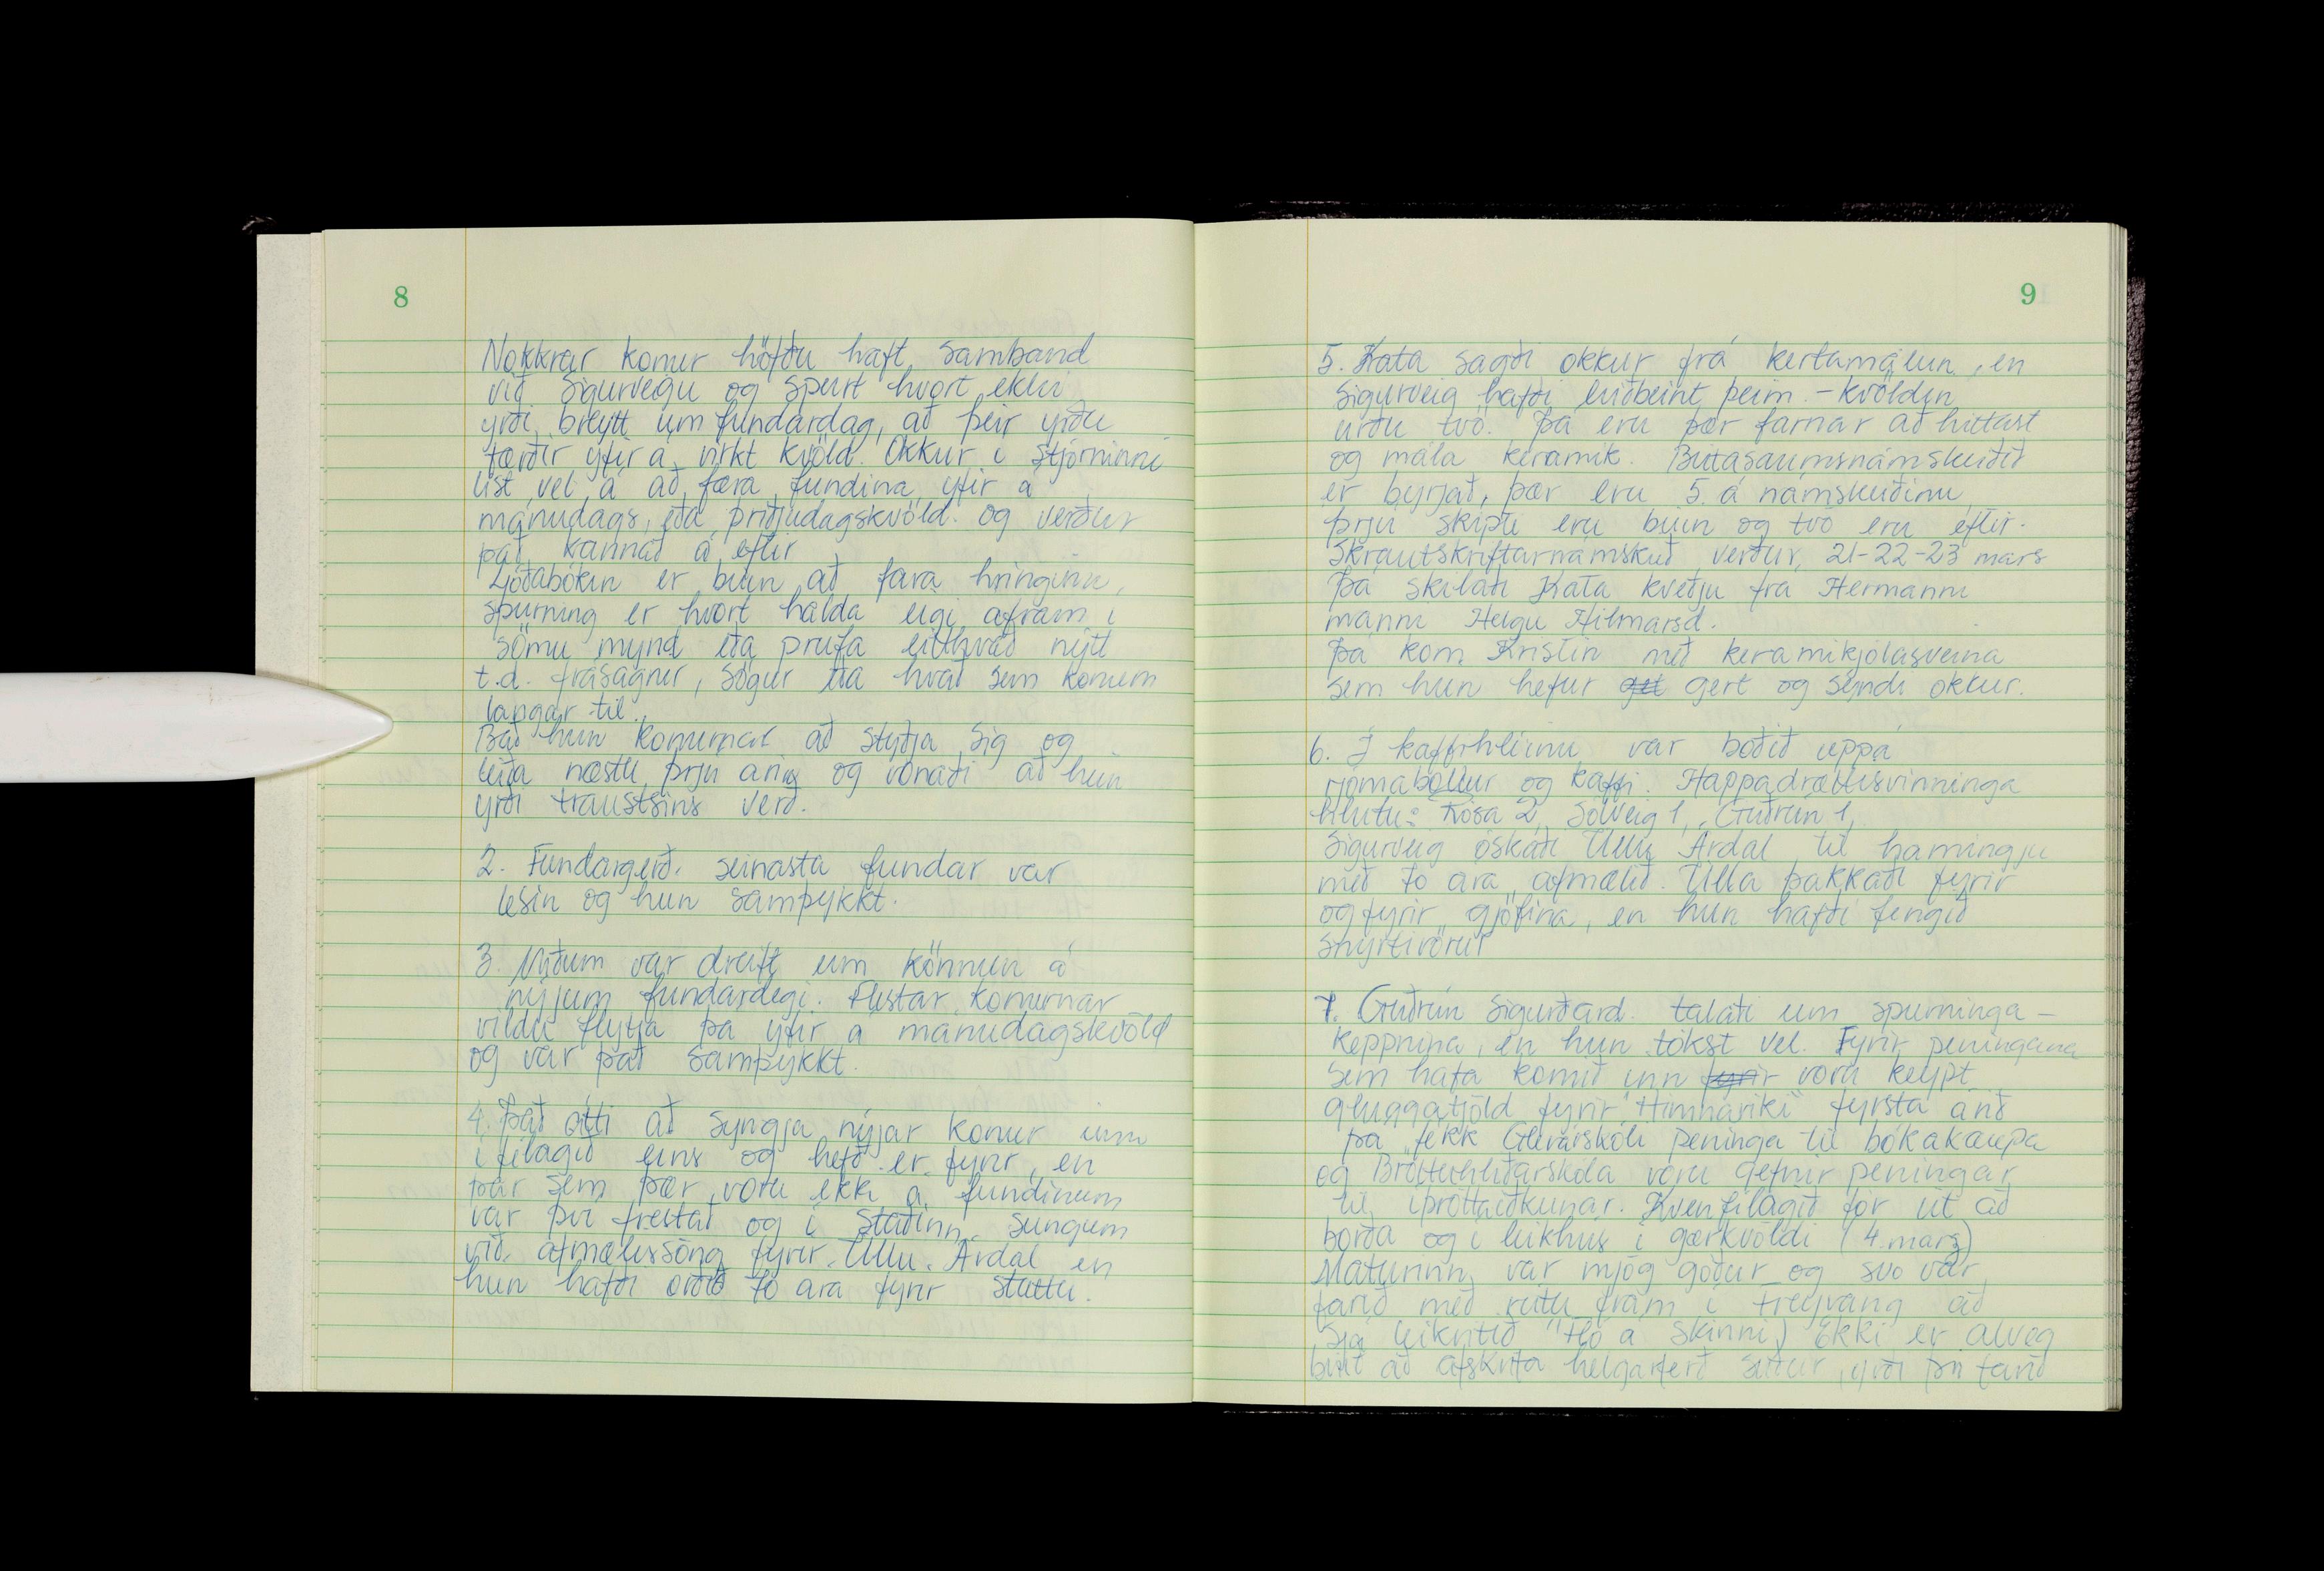 8
Nokkrar konur höfðu haft samband
við Sigurveigu og spurt hvort ekki
yrði breytt um fundardag, að þeir yrðu
færðir yfir á virkt kvöld. Okkur í stjórninni
líst vel á að færa fundina yfir á
mánudags, eða þriðjudagskvöld. og verður
það kannað á eftir
Ljóðabókin er búin að fara hringinn,
spurning er hvort halda eigi áfram í
sömu mynd eða prufa eitthvað nýtt
t.d. frásagnir, sögur eða hvað sem konum
langar til.
Bað hún konurnar að styðja sig og
leiða næstu þrjú árin og vonaði að hún
yrði traustsins verð.
2. Fundargerð. seinasta fundar var
lesin og hún samþykkt.
3. Miðum var dreift um könnun á
nýjum fundardegi. Flestar konurnar
vildu flytja þá yfir á mánudagskvöld
og var það samþykkt.
4. Það átti að syngja nýjar konur inn
í félagið eins og hefð er fyrir, en
þar sem þær voru ekki á fundinum
var því frestað og í staðinn sungum
við afmælissöng fyrir Ullu Árdal en
hún hafði orðið 70 ára fyrir stuttu.
9
5. Kata sagði okkur frá kertamálun, en
Sigurveig hafði leiðbeint þeim. - kvöldin
urðu tvö. Þá eru þær farnar að hittast
og mála keramik. Bútasaumsnámskeiðið
er byrjað, þær eru 5. á námskeiðinu,
þrjú skipti eru búin og tvö eru eftir.
Skrautskriftarnámskeið verður 21-22-23 mars
Þá skilaði Kata kveðju frá Hermanni
manni Helgu Hilmarsd.
Þá kom Kristín með keramikjólasveina
sem hún hefur get gert og sýndi okkur.
6. Í kaffihléinu var boðið uppá
rjómabollur og kaffi. Happadrættisvinninga
hlutu: Rósa 2, Sólveig 1, Guðrún 1,
Sigurveig óskaði Ullu Árdal til hamingju
með 70 ára afmælið. Ulla þakkaði fyrir
og fyrir gjöfina, en hún hafði fengið
snyrtivörur
7. Guðrún Sigurðard. talaði um spurninga-
keppnina, en hún tókst vel. Fyrir peningana
sem hafa komið inn fyrir voru keypt
gluggatjöld fyrir "Himnaríki" fyrsta árið
þá fékk Glerárskóli peninga til bókakaupa
og Brattuhlíðarskóla voru gefnir peningar
til íþróttaiðkunar. Kvenfélagið fór út að
borða og í leikhús í gærkvöldi (4. mars)
Maturinn var mjög góður og svo var
farið með rútu fram í Freyvang að
sjá leikritið "Fló á skinni) Ekki er alveg
búið að afskrifa helgarferð suður, yrði þá farið